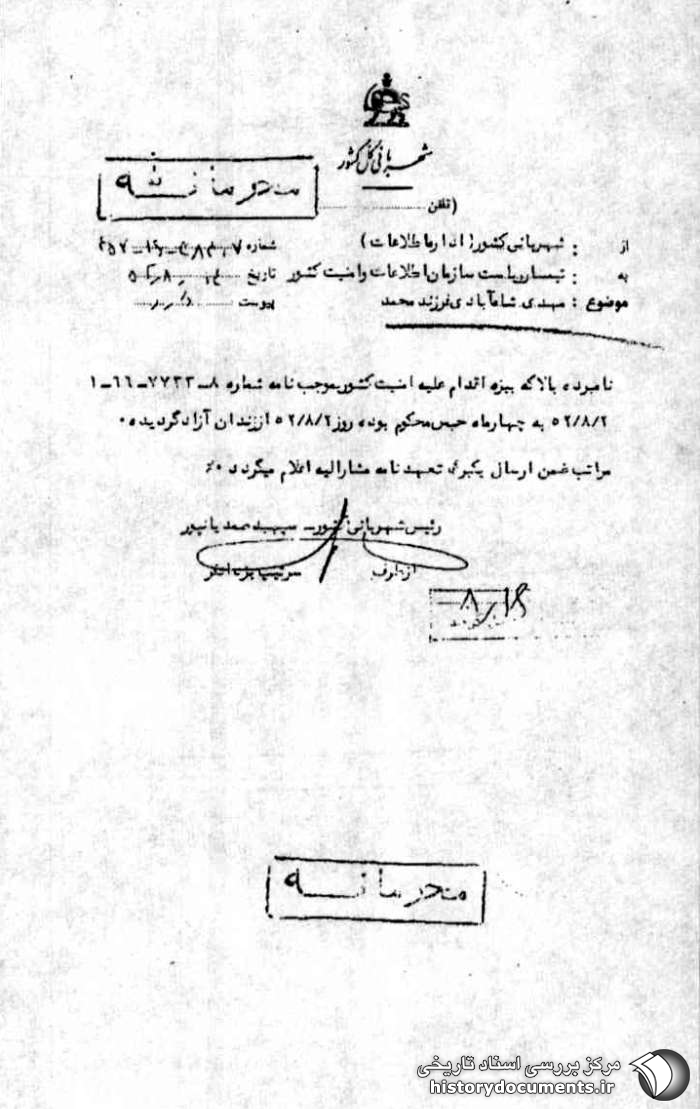 شهربانی کل کشور
محرمانه
(تلفن
از : شهربانی کشور (اداره اطلاعات) شماره
به : تیمسار ریاست سازمان اطلاعات و امنیت کشور تاریخ
موضوع : مهدی شاه‌آبادی فرزند محمد پیوست دارد
نامبرده بالا که ببزه اقدام علیه امنیت کشور بموجب نامه شماره ۸-۷۷۳۳-۶۶-۱
۵۲/۸/۲ به چهارماه حبس محکوم بوده روز ۵۲/۸/۲ از زندان آزاد گردیده.
مراتب ضمن ارسال یکبرگ تعهد نامه مشارالیه اعلام میگردد.٪
رئیس شهربانی کشور - سپهبد صمدیانپور
از طرف سرتیپ
۸/۱۶
محرمانه
مرکز بررسی اسناد تاریخی
historydocuments.ir